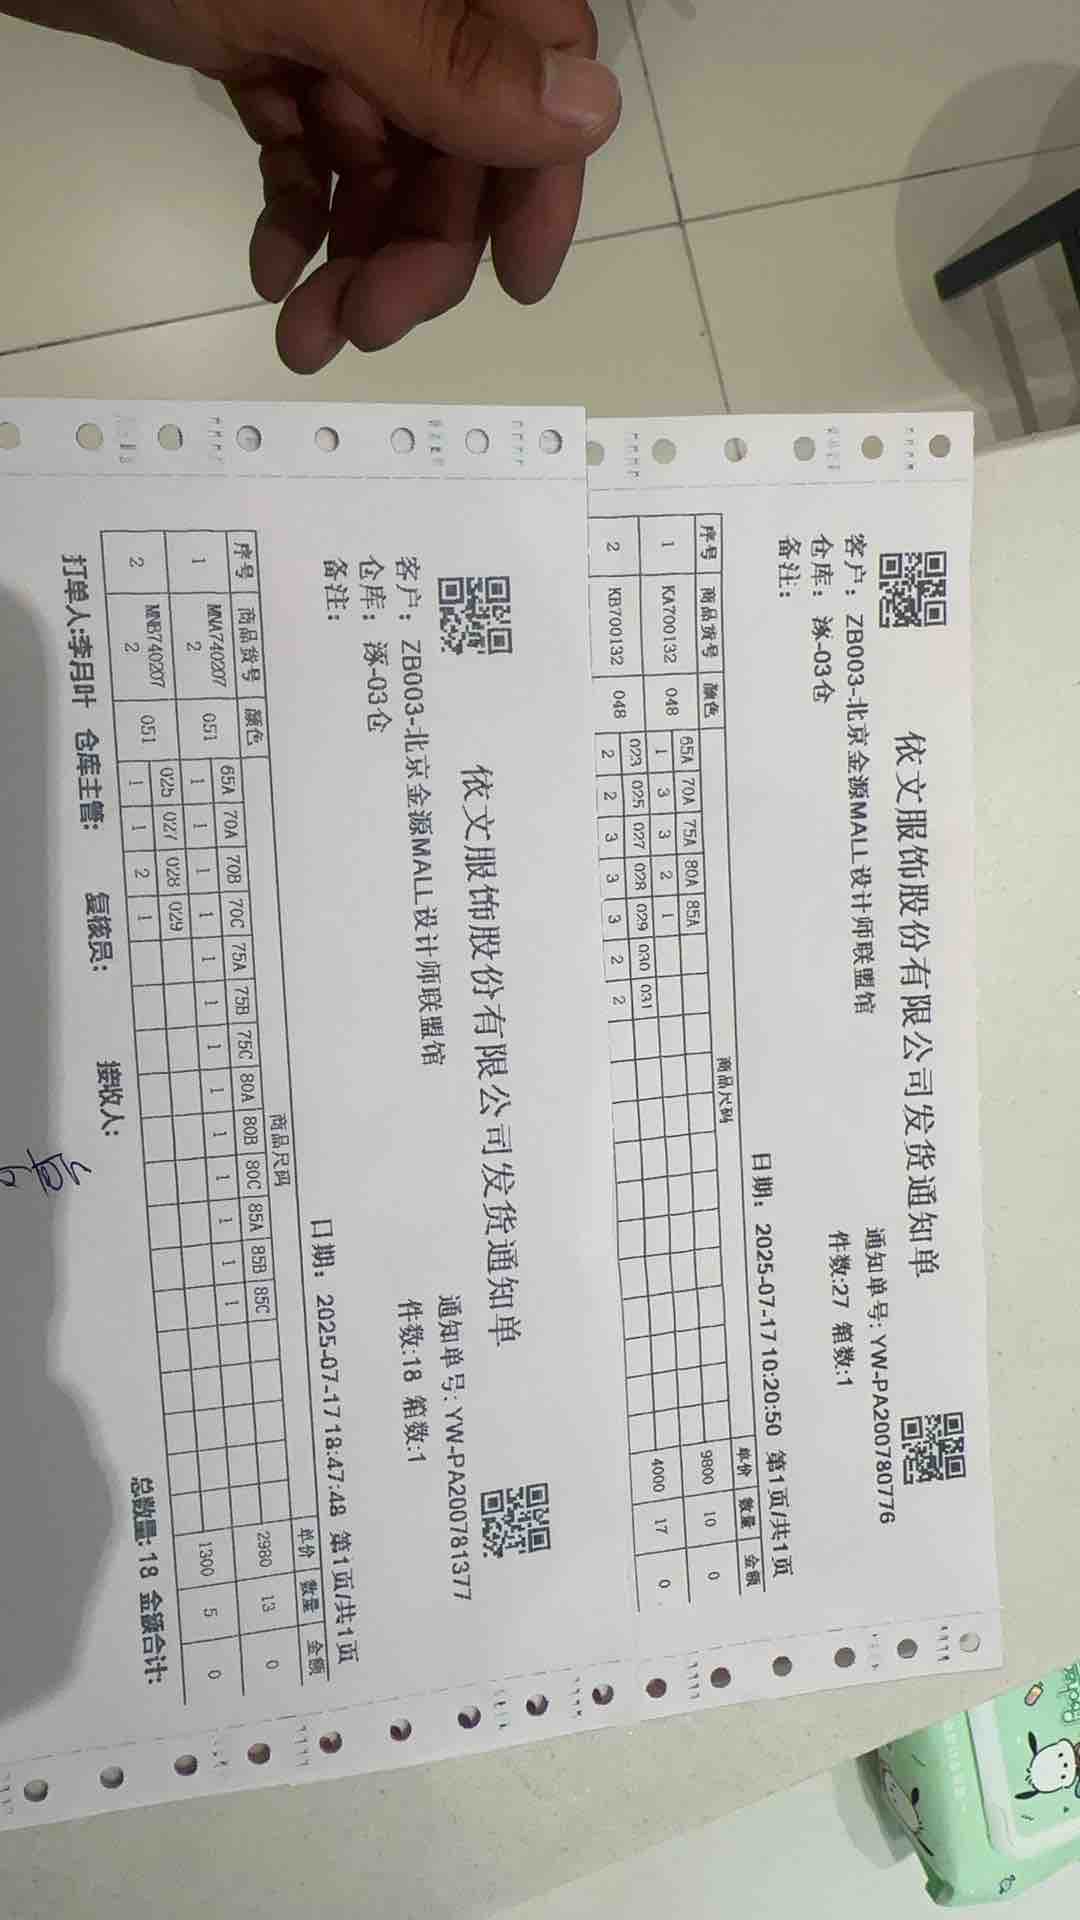 依文服饰股份有限公司发货通知单
客户: ZB003-北京金源MALL设计师联盟馆
通知单号: YW-PA200780776
仓库: 涿-03仓
件数:27 箱数:1
备注:
日期: 2025-07-17 10:20:50 第1页/共1页
序号 商品货号 颜色 商品尺码 单价 数量 金额
65A 70A 75A 80A 85A
1 KA700132 048 1 3 3 2 1 9800 10 0
023 025 027 028 029 030 031
2 KB700132 048 2 2 3 3 3 2 2 4000 17 0
依文服饰股份有限公司发货通知单
客户: ZB003-北京金源MALL设计师联盟馆
通知单号: YW-PA200781377
仓库: 涿-03仓
件数:18 箱数:1
备注:
日期: 2025-07-17 18:47:48 第1页/共1页
序号 商品货号 颜色 商品尺码 单价 数量 金额
65A 70A 70B 70C 75A 75B 75C 80A 80B 80C 85A 85B 85C
1 MNA7402072 051 1 1 1 1 1 1 1 1 1 1 1 1 1 2980 13 0
025 027 028 029
2 MNB7402072 051 1 1 2 1 1300 5 0
总数量: 18 金额合计:
打单人:李月叶 仓库主管: 复核员: 接收人: